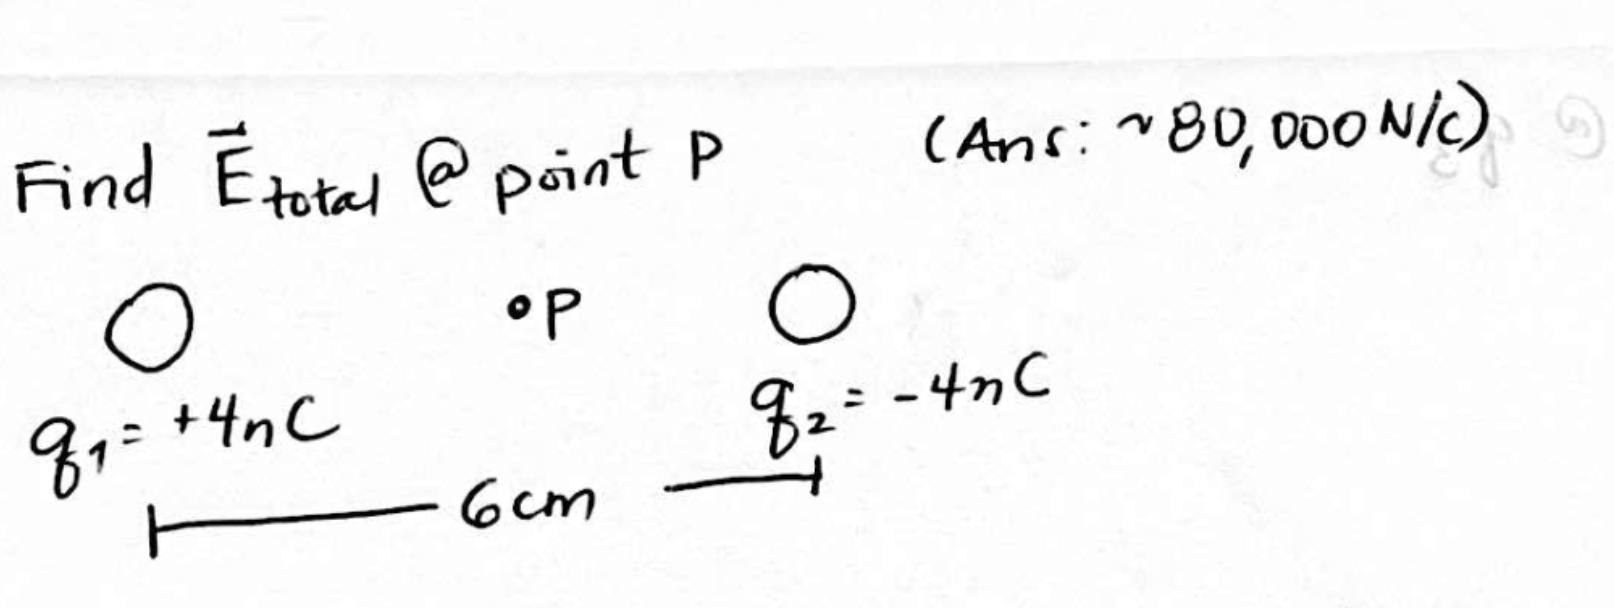 Find E⃗ total @ point P (Ans: ~80,000 N/C)
•P
q₁ = +4nC
q₂ = -4nC
6cm